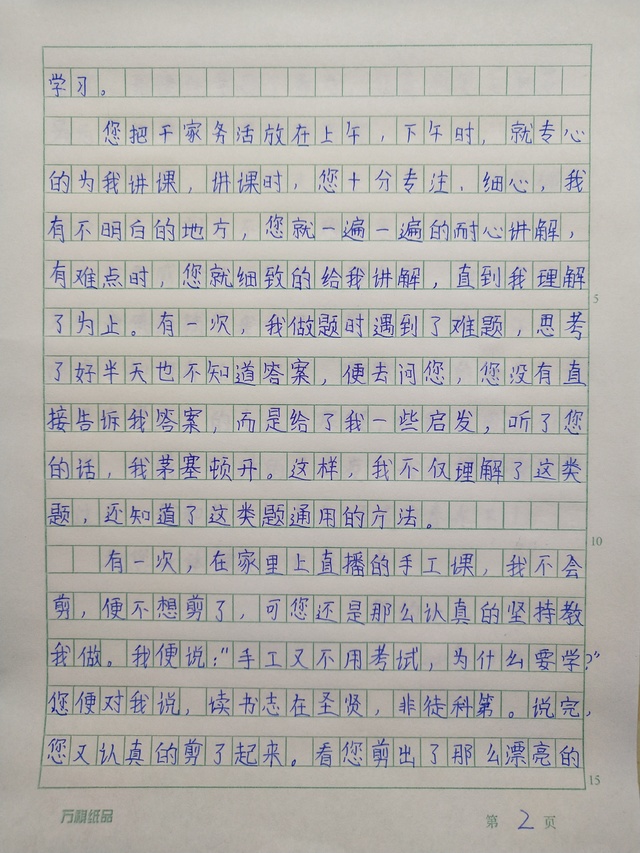 学习。
您把干家务活放在上午，下午时，就专心
的为我讲课，讲课时，您十分专注、细心，我
有不明白的地方，您就一遍一遍的耐心讲解，
有难点时，您就细致的给我讲解，直到我理解
5
了为止。有一次，我做题时遇到了难题，思考
了好半天也不知道答案，便去问您，您没有直
接告诉我答案，而是给了我一些启发，听了您
的话，我茅塞顿开。这样，我不仅理解了这类
题，还知道了这类题通用的方法。
10
有一次，在家里上直播的手工课，我不会
剪，便不想剪了，可您还是那么认真的坚持教
我做。我便说：“手工又不用考试，为什么要学？”
您便对我说，读书志在圣贤，非徒科第。说完，
您又认真的剪了起来。看您剪出了那么漂亮的
15
万棋纸品
第 2 页